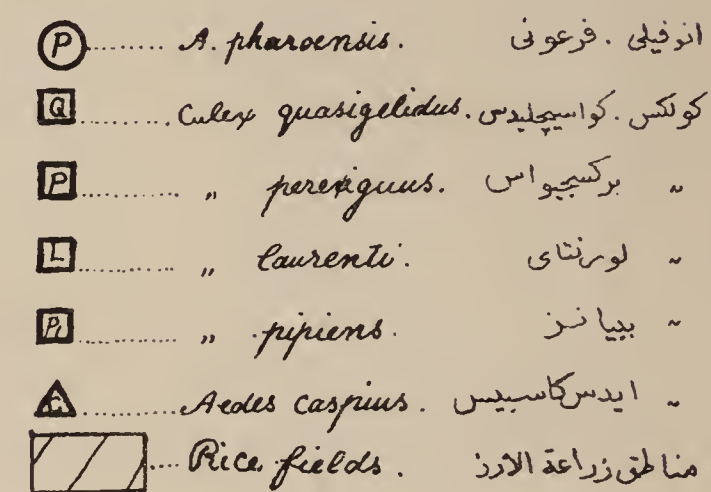 P ........ A. pharoensis. انوفيلى . فرعونى
Q ........ Culex quasigelidus. كولكس . كواسيجليدس
P ........ „ perexiguus. „ بركسجيواس
L ........ „ laurenti. „ لورنتاى
Pi ........ „ pipiens. „ بيبيانز
C ........ Aedes caspius. „ ايدس كاسبيس
.... Rice fields. مناطق زراعة الارز